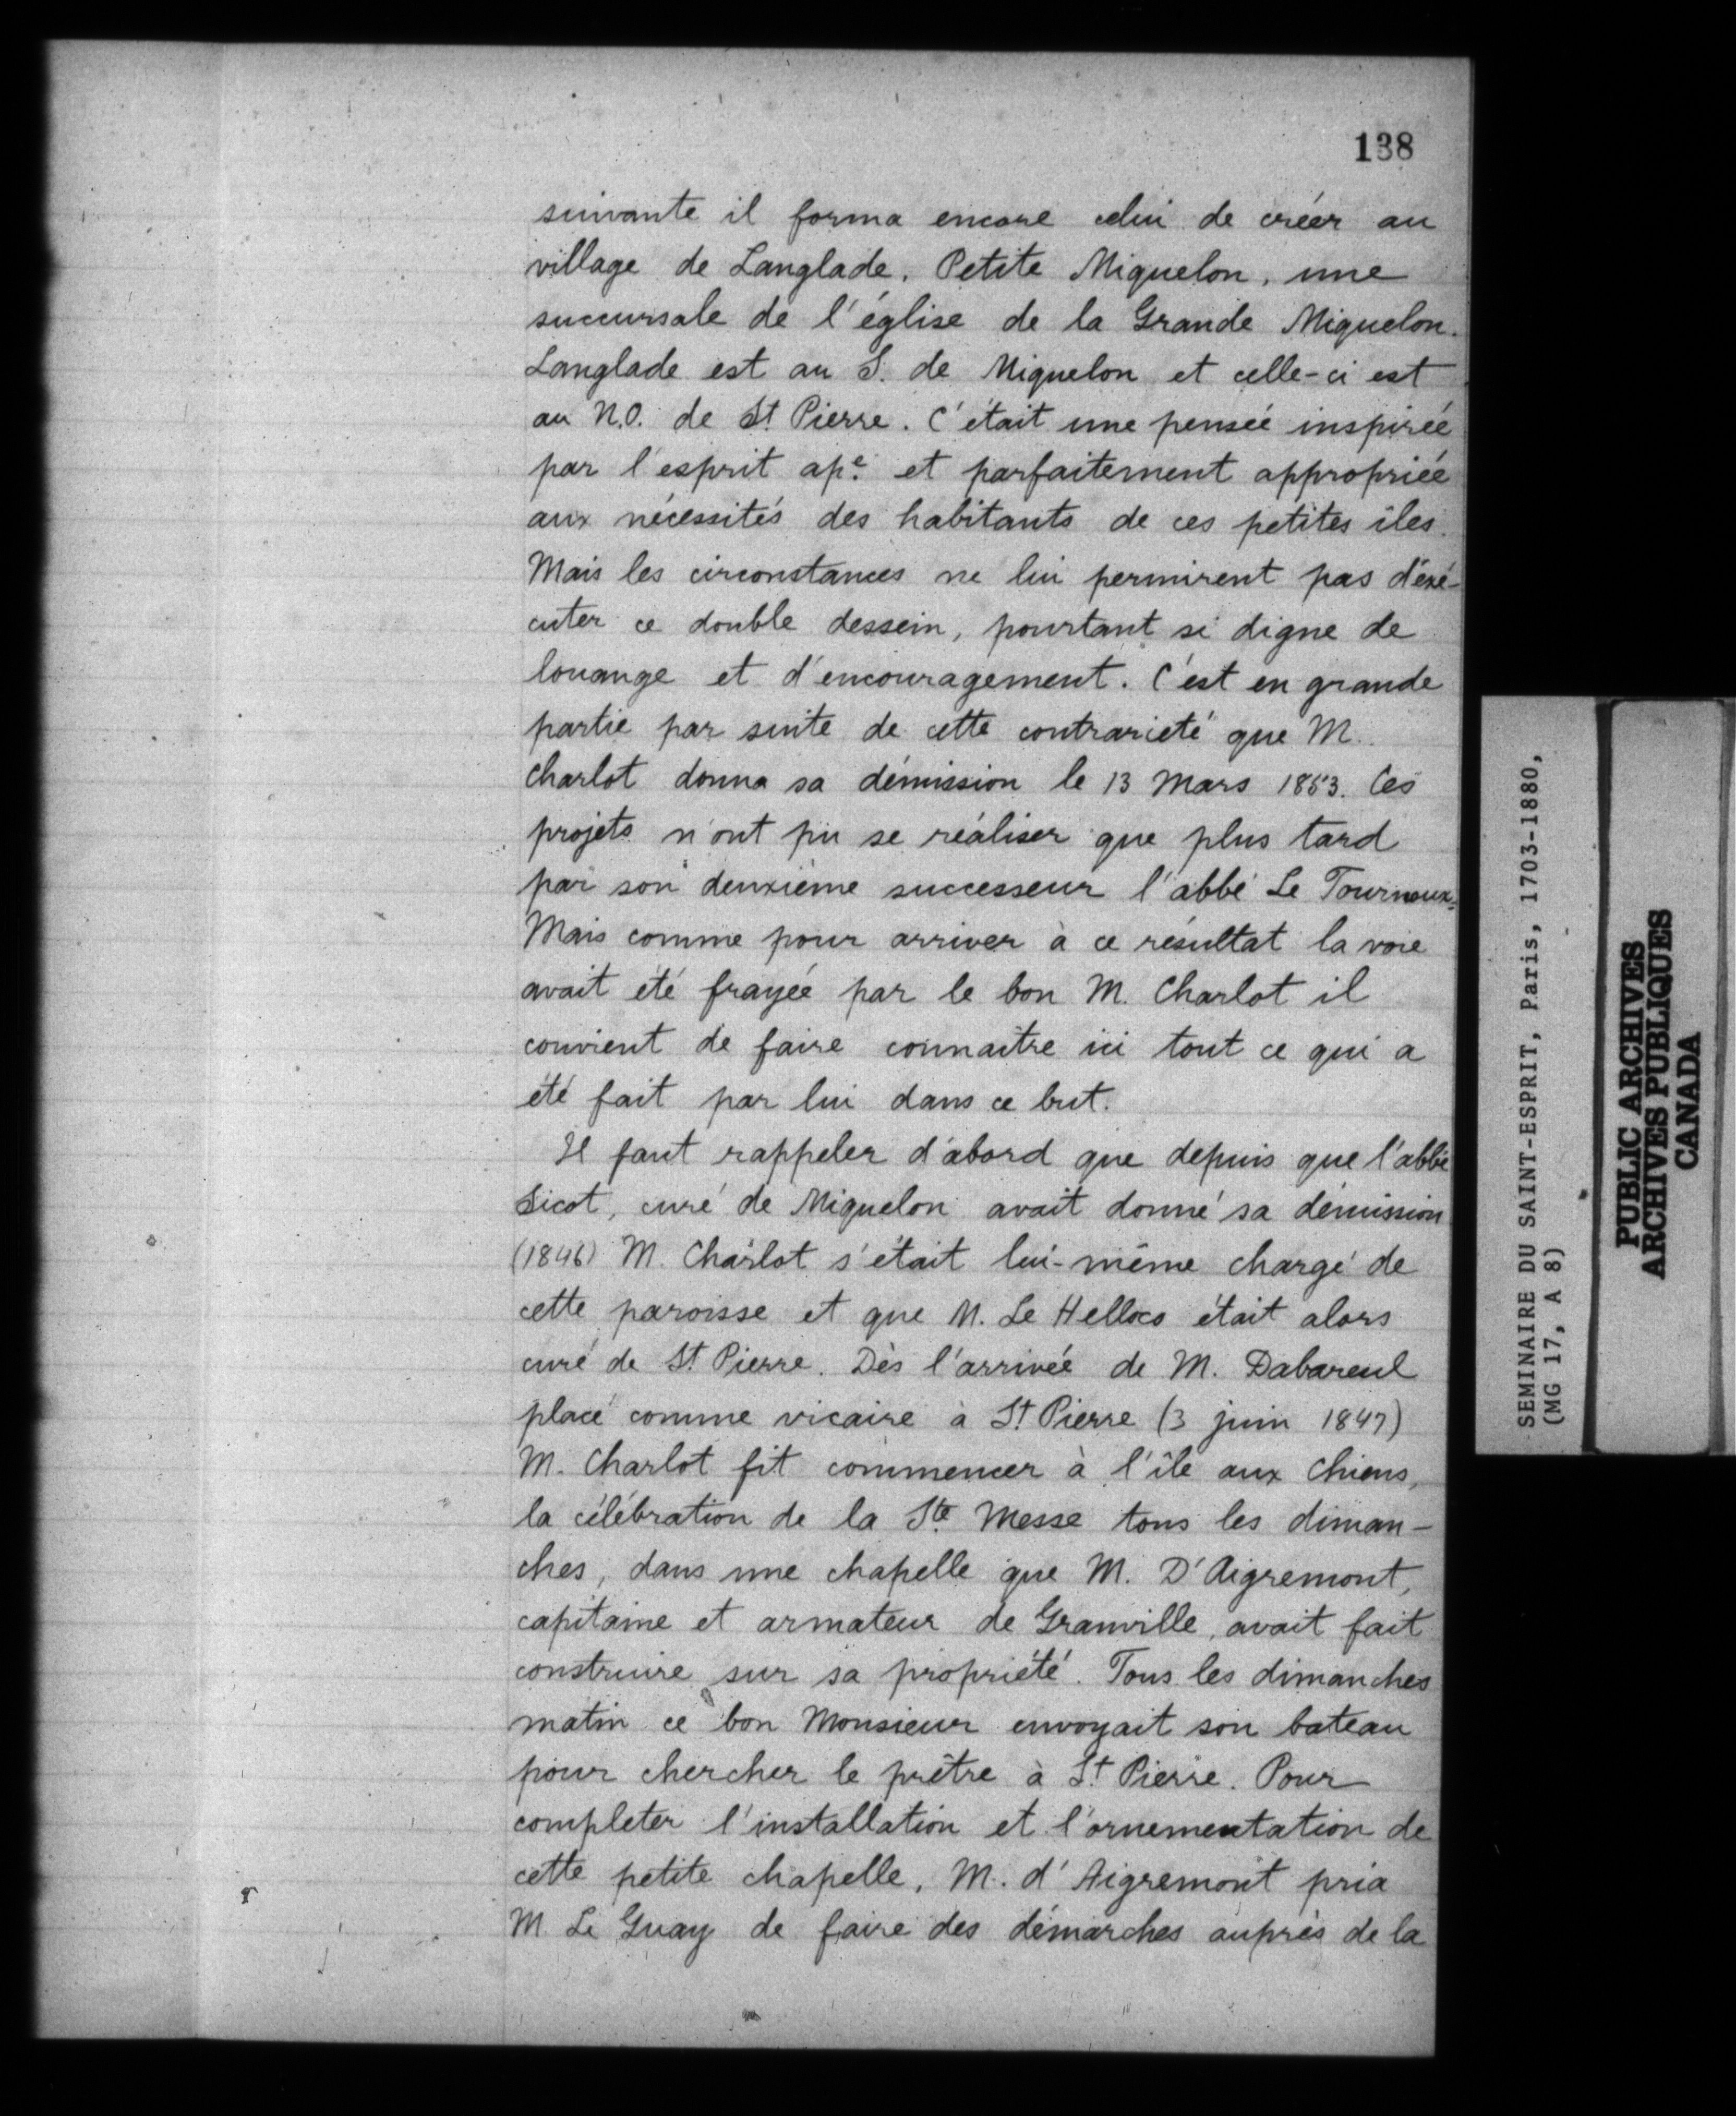 138
suivante il forma encore celui de créer au
village de Langlade, Petite Miquelon, une
succursale de l'église de la Grande Miquelon.
Langlade est au S. de Miquelon et celle-ci est
au N.O. de St Pierre. C'était une pensée inspirée
par l'esprit ape. et parfaitement appropriée
aux nécessités des habitants de ces petites îles.
Mais les circonstances ne lui permirent pas d'exé-
cuter ce double dessein, pourtant si digne de
louange et d'encouragement. C'est en grande
partie par suite de cette contrariété que M.
Charlot donna sa démission le 13 Mars 1853. Ces
projets n'ont pu se réaliser que plus tard
par son deuxième successeur l'abbé Le Tournoux.
Mais comme pour arriver à ce résultat la voie
avait été frayée par le bon M. Charlot il
convient de faire connaître ici tout ce qui a
été fait par lui dans ce but.
Il faut rappeler d'abord que depuis que l'abbé
Sicot, curé de Miquelon avait donné sa démission
(1846) M. Charlot s'était lui-même chargé de
cette paroisse et que M. Le Helloco était alors
curé de St Pierre. Dès l'arrivée de M. Dabareul
placé comme vicaire à St Pierre (3 juin 1847)
M. Charlot fit commencer à l'île aux Chiens,
la célébration de la Ste Messe tous les diman-
ches, dans une chapelle que M. D'Aigremont,
capitaine et armateur de Granville, avait fait
construire sur sa propriété. Tous les dimanches
matin ce bon Monsieur envoyait son bateau
pour chercher le prêtre à St Pierre. Pour
completer l'installation et l'ornementation de
cette petite chapelle, M. d'Aigremont pria
M. Le Guay de faire des démarches auprès de la
SEMINAIRE DU SAINT-ESPRIT, Paris, 1703-1880,
(MG 17, A 8)
PUBLIC ARCHIVES
ARCHIVES PUBLIQUES
CANADA